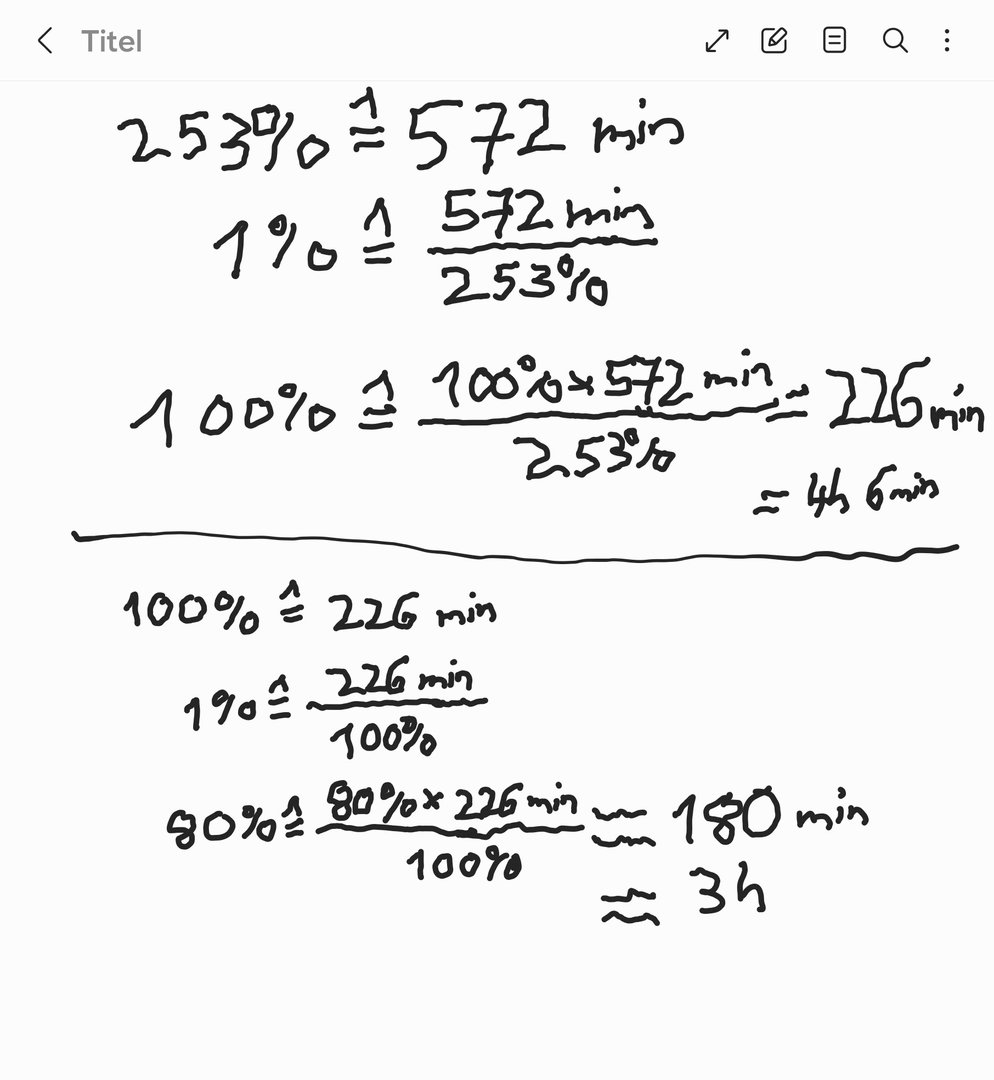 Titel
253% ≙ 572 min
1% ≙ 572 min / 253%
100% ≙ 100% × 572 min / 253% = 226 min
= 4h 6 min
100% ≙ 226 min
1% ≙ 226 min / 100%
80% ≙ 80% × 226 min / 100% ≈ 180 min
≈ 3h